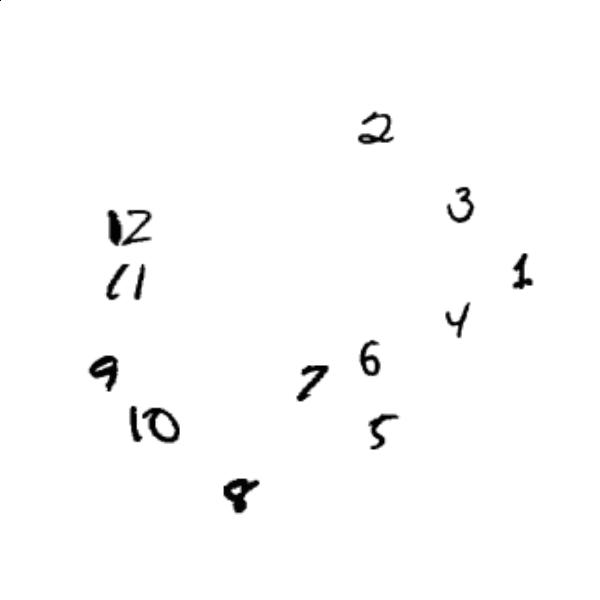 2
3
12
1
11
4
6
9
7
10
5
8